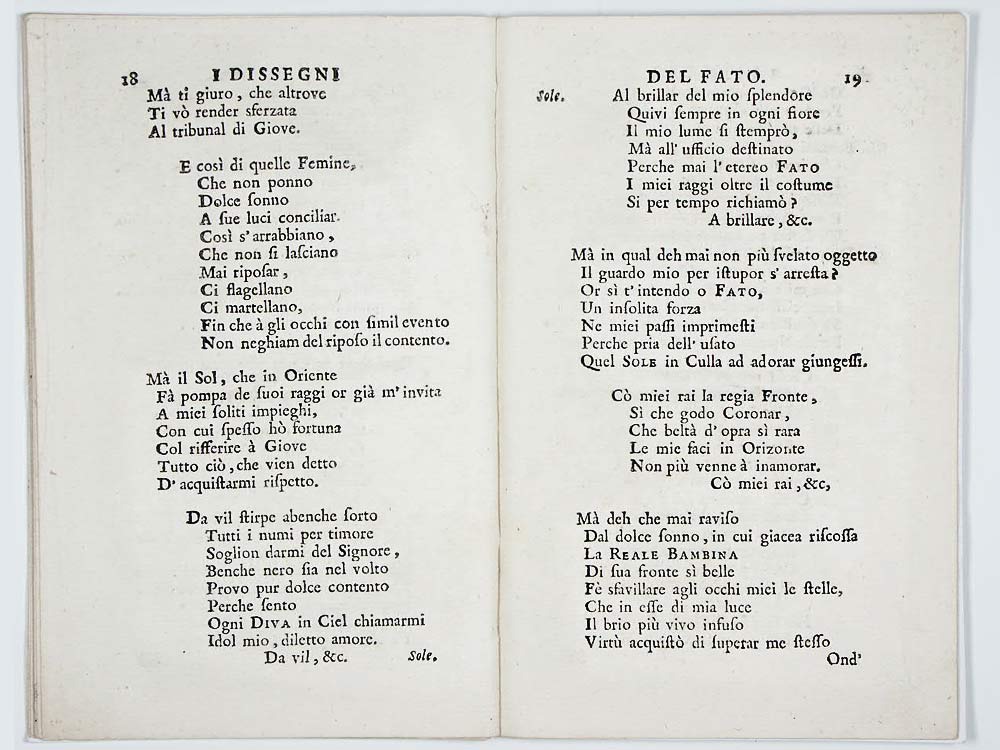 18 I DISSEGNI
Mà ti giuro, che altrove
Ti vò render sferzata
Al tribunal di Giove.
E così di quelle Femine,
Che non ponno
Dolce sonno
A ſue luci conciliar.
Così s'arrabbiano,
Che non ſi laſciano
Mai ripoſar,
Ci flagellano
Ci martellano,
Fin che à gli occhi con ſimil evento
Non neghiam del ripoſo il contento.
Mà il Sol, che in Oriente
Fà pompa de ſuoi raggi or già m'invita
A miei ſoliti impieghi,
Con cui ſpeſſo hò fortuna
Col rifferire à Giove
Tutto ciò, che vien detto
D'acquiſtarmi riſpetto.
Da vil ſtirpe abenche ſorto
Tutti i numi per timore
Soglion darmi del Signore,
Benche nero ſia nel volto
Provo pur dolce contento
Perche ſento
Ogni DIVA in Ciel chiamarmi
Idol mio, diletto amore.
Da vil, &c. Sole.
DEL FATO. 19
Sole. Al brillar del mio ſplendore
Quivi ſempre in ogni fiore
Il mio lume ſi ſtemprò,
Mà all' ufficio deſtinato
Perche mai l'etereo FATO
I miei raggi oltre il coſtume
Si per tempo richiamò?
A brillare, &c.
Mà in qual deh mai non più ſvelato oggetto
Il guardo mio per iſtupor s'arreſta?
Or sì t'intendo o FATO,
Un inſolita forza
Ne miei paſſi imprimeſti
Perche pria dell' uſato
Quel SOLE in Culla ad adorar giungeſſi.
Cò miei rai la regia Fronte,
Sì che godo Coronar,
Che beltà d'opra sì rara
Le mie faci in Orizonte
Non più venne à inamorar.
Cò miei rai, &c,
Mà deh che mai raviſo
Dal dolce ſonno, in cui giacea riſcoſſa
La REALE BAMBINA
Di ſua fronte sì belle
Fè sfavillare agli occhi miei le ſtelle,
Che in eſſe di mia luce
Il brio più vivo infuſo
Virtù acquiſtò di ſuperar me ſteſſo
Ond'